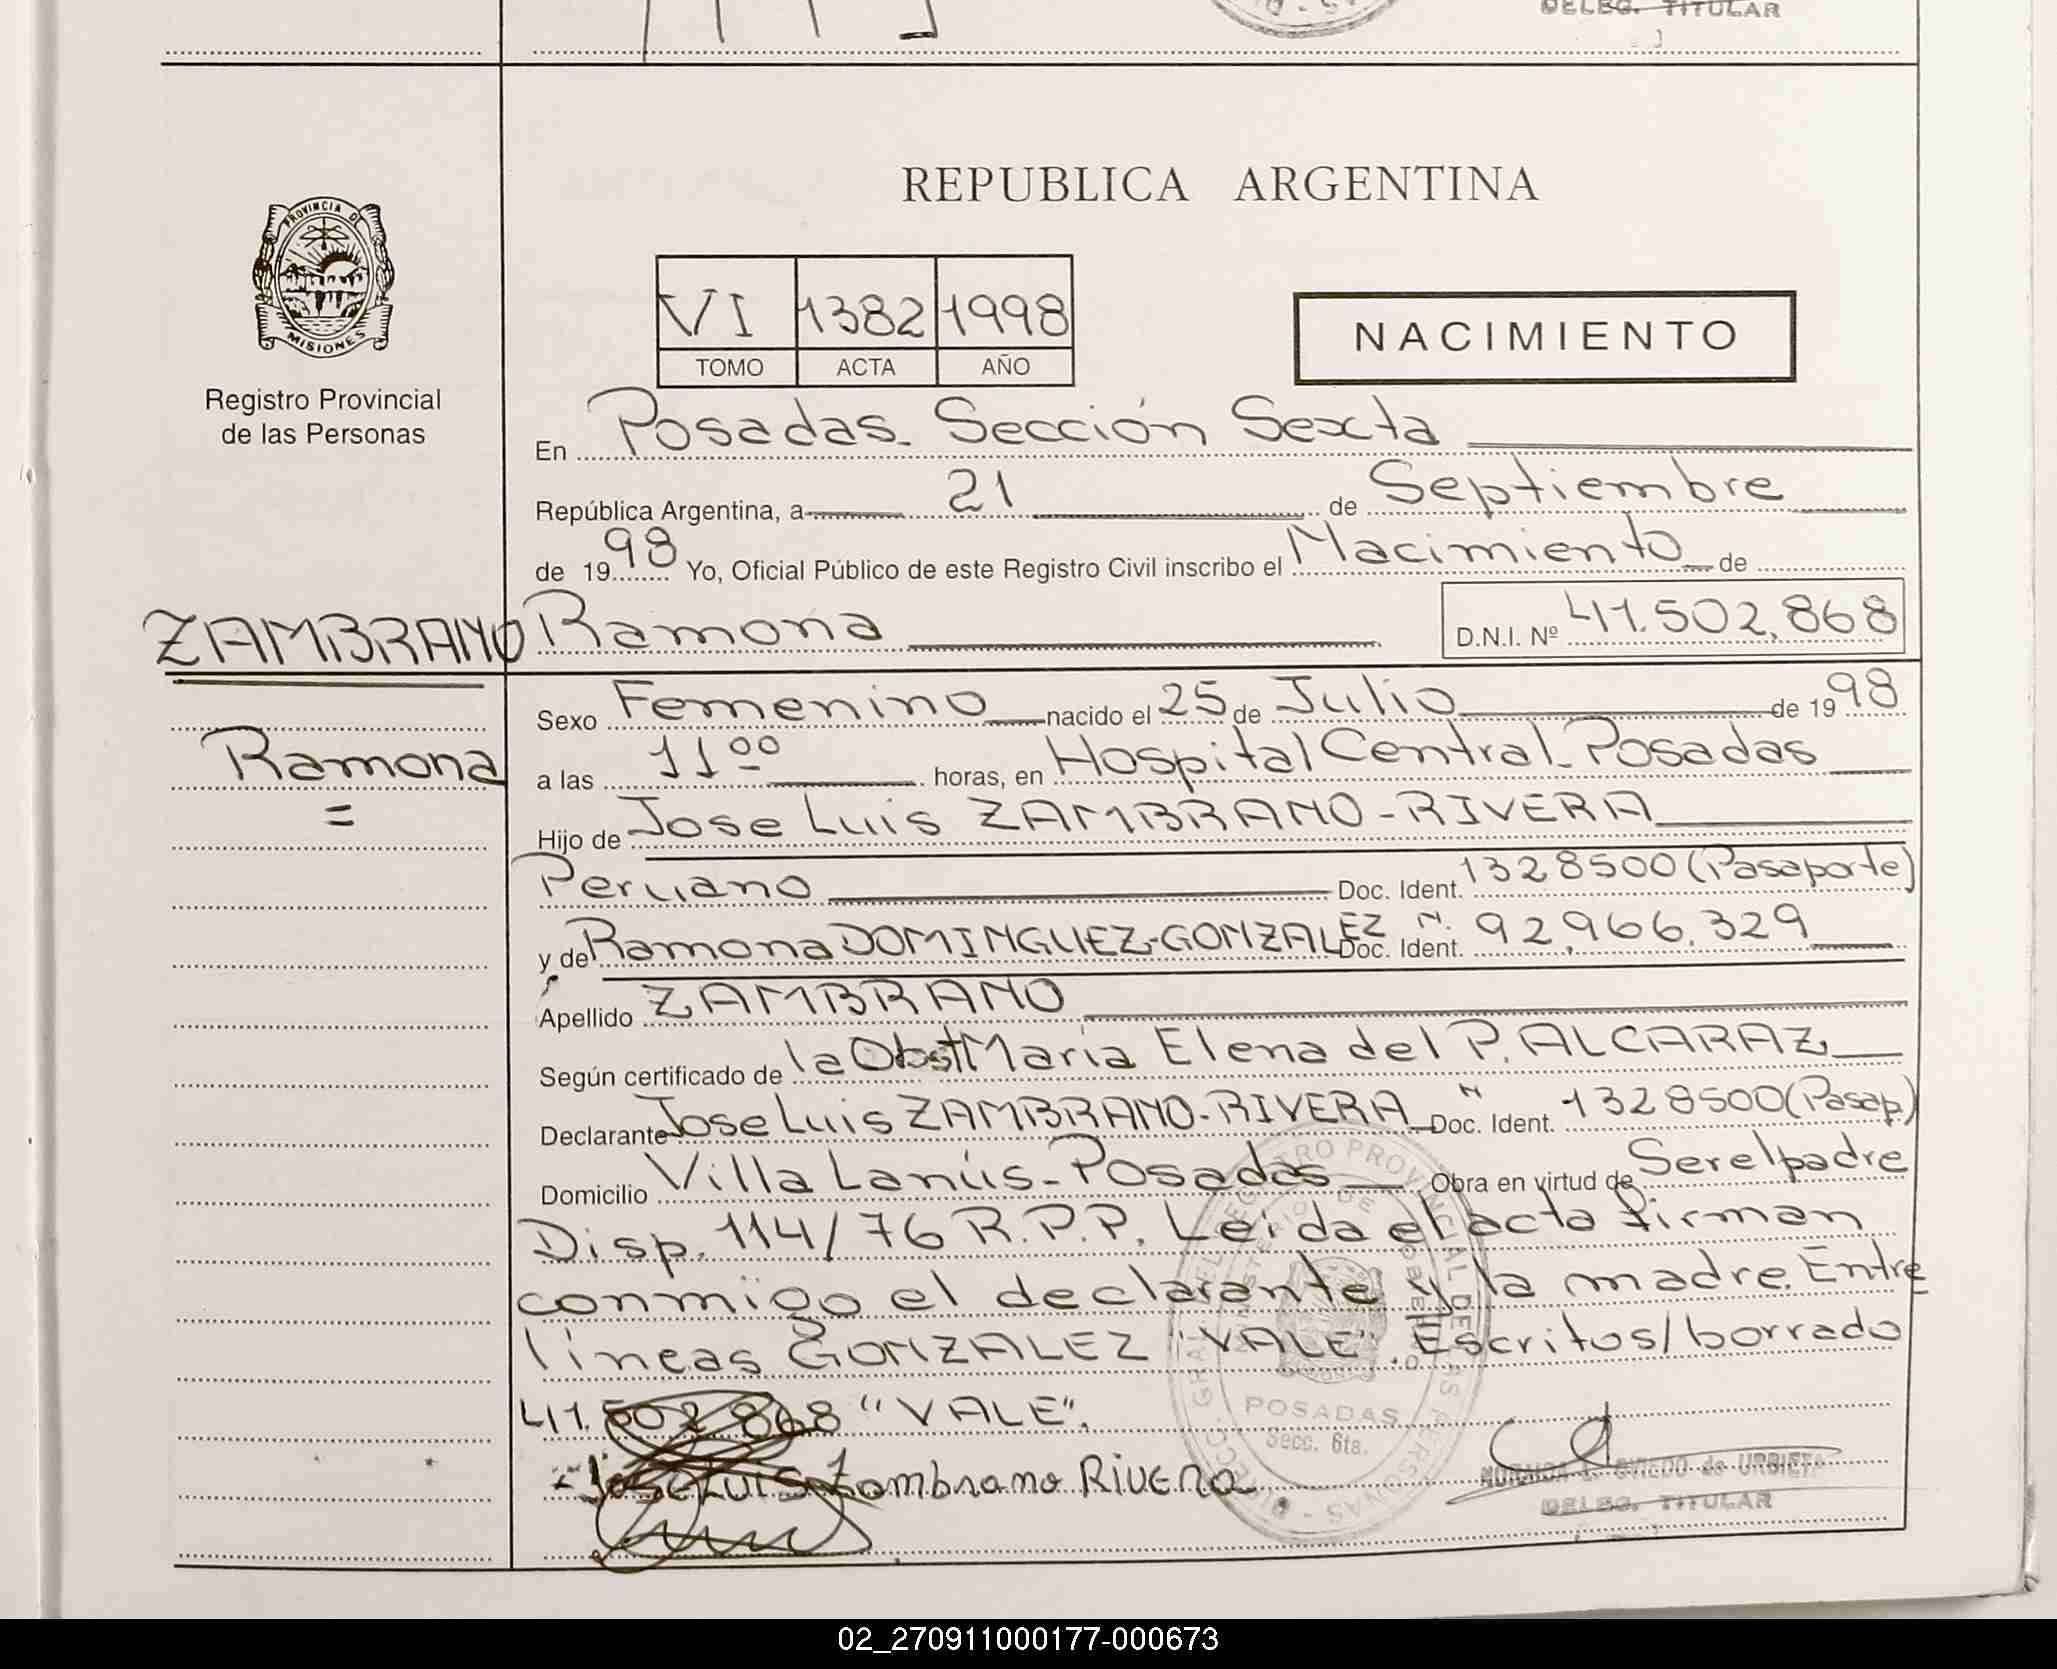 DELEG. TITULAR
REPUBLICA ARGENTINA
PROVINCIA DE
MISIONES
Registro Provincial
de las Personas
VI 1382 1998
TOMO ACTA AÑO
NACIMIENTO
En Posadas. Sección Sexta
República Argentina, a 21 de Septiembre
de 1998 Yo, Oficial Público de este Registro Civil inscribo el Nacimiento de
ZAMBRANO Ramona D.N.I. Nº 41.502.868
Sexo Femenino nacido el 25 de Julio de 1998
Ramona
=
a las 11 00 horas, en Hospital Central. Posadas
Hijo de Jose Luis ZAMBRANO-RIVERA
Peruano Doc. Ident. 1328500 (Pasaporte)
y de Ramona DOMINGUEZ-GONZALEZ Doc. Ident. N. 92.966.329
Apellido ZAMBRANO
Según certificado de la Obst Maria Elena del P. ALCARAZ
Declarante Jose Luis ZAMBRANO-RIVERA Doc. Ident. N 1328500 (Pasap.)
Domicilio Villa Lanús-Posadas Obra en virtud de Ser el padre
Disp. 114/76 R.P.P. Leida el acta firman
conmigo el declarante y la madre. Entre
lineas GONZALEZ "VALE". Escritos/borrado
41.502.868 "VALE".
Jose Luis Zambrano Rivera
POSADAS
Secc. 6ta.
OVIEDO de URBIETA
DELEG. TITULAR
02_270911000177-000673